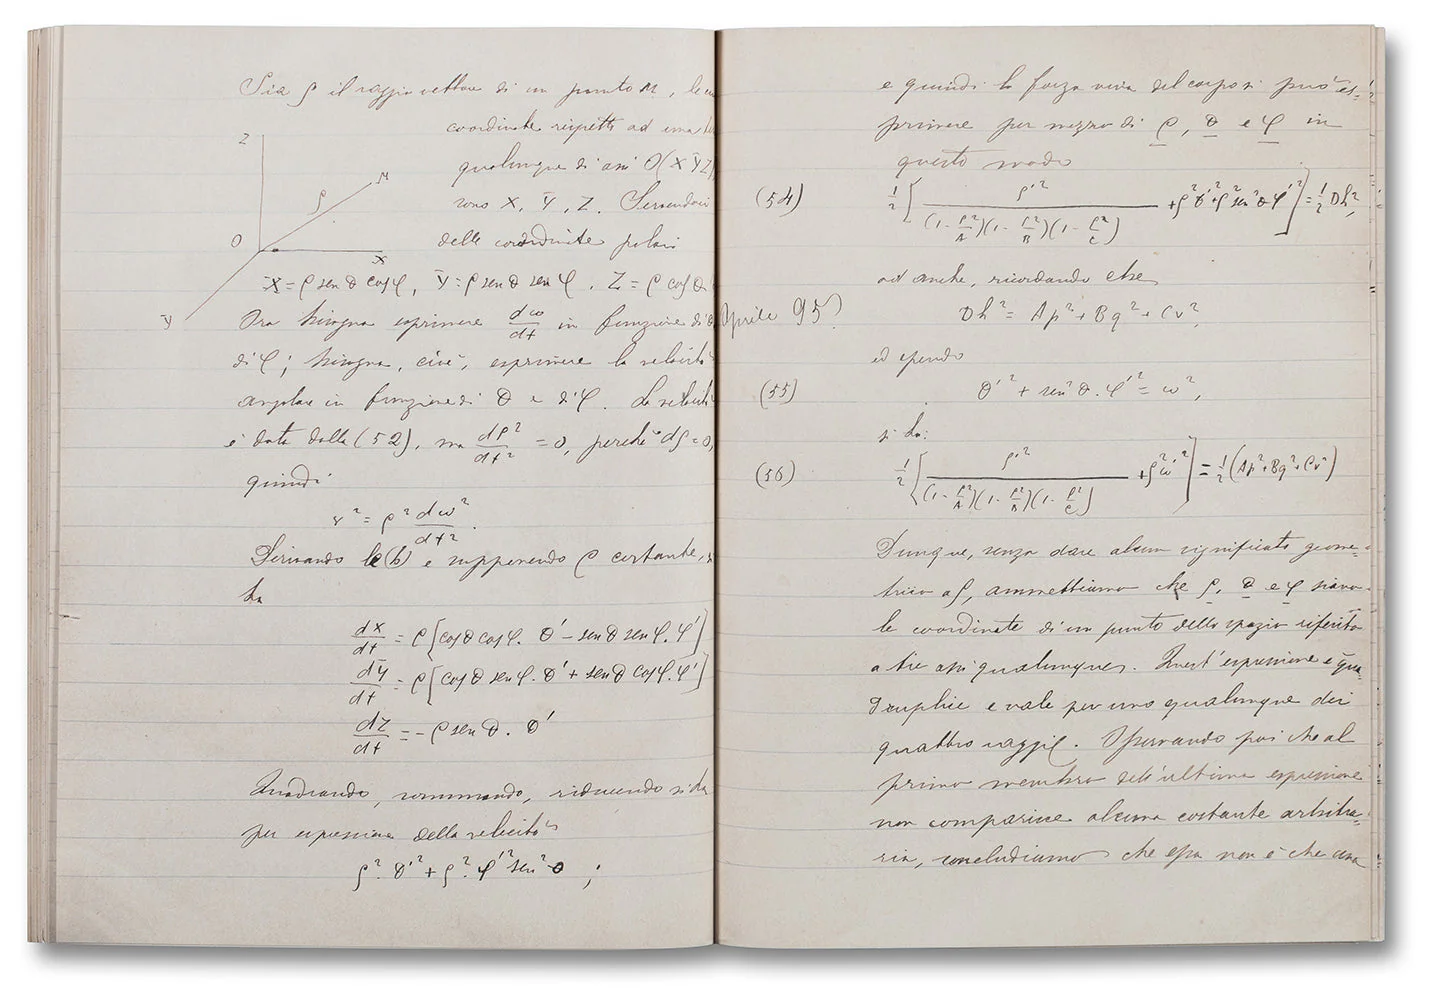 Sia ρ il raggio vettore di un punto M, le cu
coordinate rispetto ad una
qualunque di assi O(X Y Z)
sono X, Y, Z. Servendoci
delle coordinate polari
Z
M
ρ
O
X
Y
X = ρ sen θ cos φ, Y = ρ sen θ sen φ, Z = ρ cos θ
Ora bisogna esprimere dω/dt in funzione di θ
di φ; bisogna, cioè, esprimere la velocità
angolare in funzione di θ e di φ. La velocità
è data dalla (52), ma dρ²/dt² = 0, perchè dρ = 0,
quindi
v² = ρ² dω²/dt².
Derivando le (b) e supponendo ρ costante, si
ha
dX/dt = ρ[cos θ cos φ. θ' − sen θ sen φ. φ']
dY/dt = ρ[cos θ sen φ. θ' + sen θ cos φ. φ']
dZ/dt = − ρ sen θ. θ'
Quadrando, sommando, riducendo si ha
per espressione della velocità
ρ². θ'² + ρ². φ'² sen² θ ;
Aprile 95?
e quindi la forza viva del corpo si può es-
primere per mezzo di ρ, θ e φ in
questo modo
(54) 1/2 [ρ'² / (1 − ρ²/A)(1 − ρ²/B)(1 − ρ²/C) + ρ² θ'² + ρ² sen² θ φ'²] = 1/2 Dh²,
ad anche, ricordando che
Dh² = Ap² + Bq² + Cr²,
ed essendo
(55) θ'² + sen² θ. φ'² = ω²,
si ha:
(56) 1/2 [ρ'² / (1 − ρ²/A)(1 − ρ²/B)(1 − ρ²/C) + ρ² ω'²] = 1/2 (Ap² + Bq² + Cr²)
Dunque, senza dare alcun significato geome-
trico a ρ, ammettiamo che ρ, θ e φ siano
le coordinate di un punto dello spazio riferito
a tre assi qualunques. Quest'espressione è qua-
druplice e vale per uno qualunque dei
quattro raggi ρ. Osservando poi che al
primo membro dell'ultima espressione
non comparisce alcuna costante arbitra-
ria, concludiamo che essa non è che una